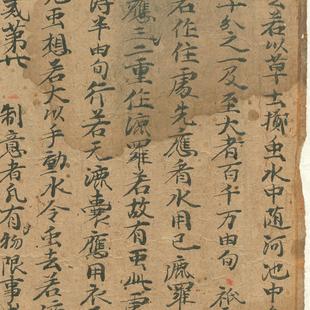 若以草土擲虫水中随河池中
十分之一及至大者百千万由旬
若作住處先應看水用已漉羅
應三二重住漉羅若故有虫此
得半由旬行若无漉囊應用衣
虫想若大以手動水令虫去若
戒第廿 制意者凡有物限事